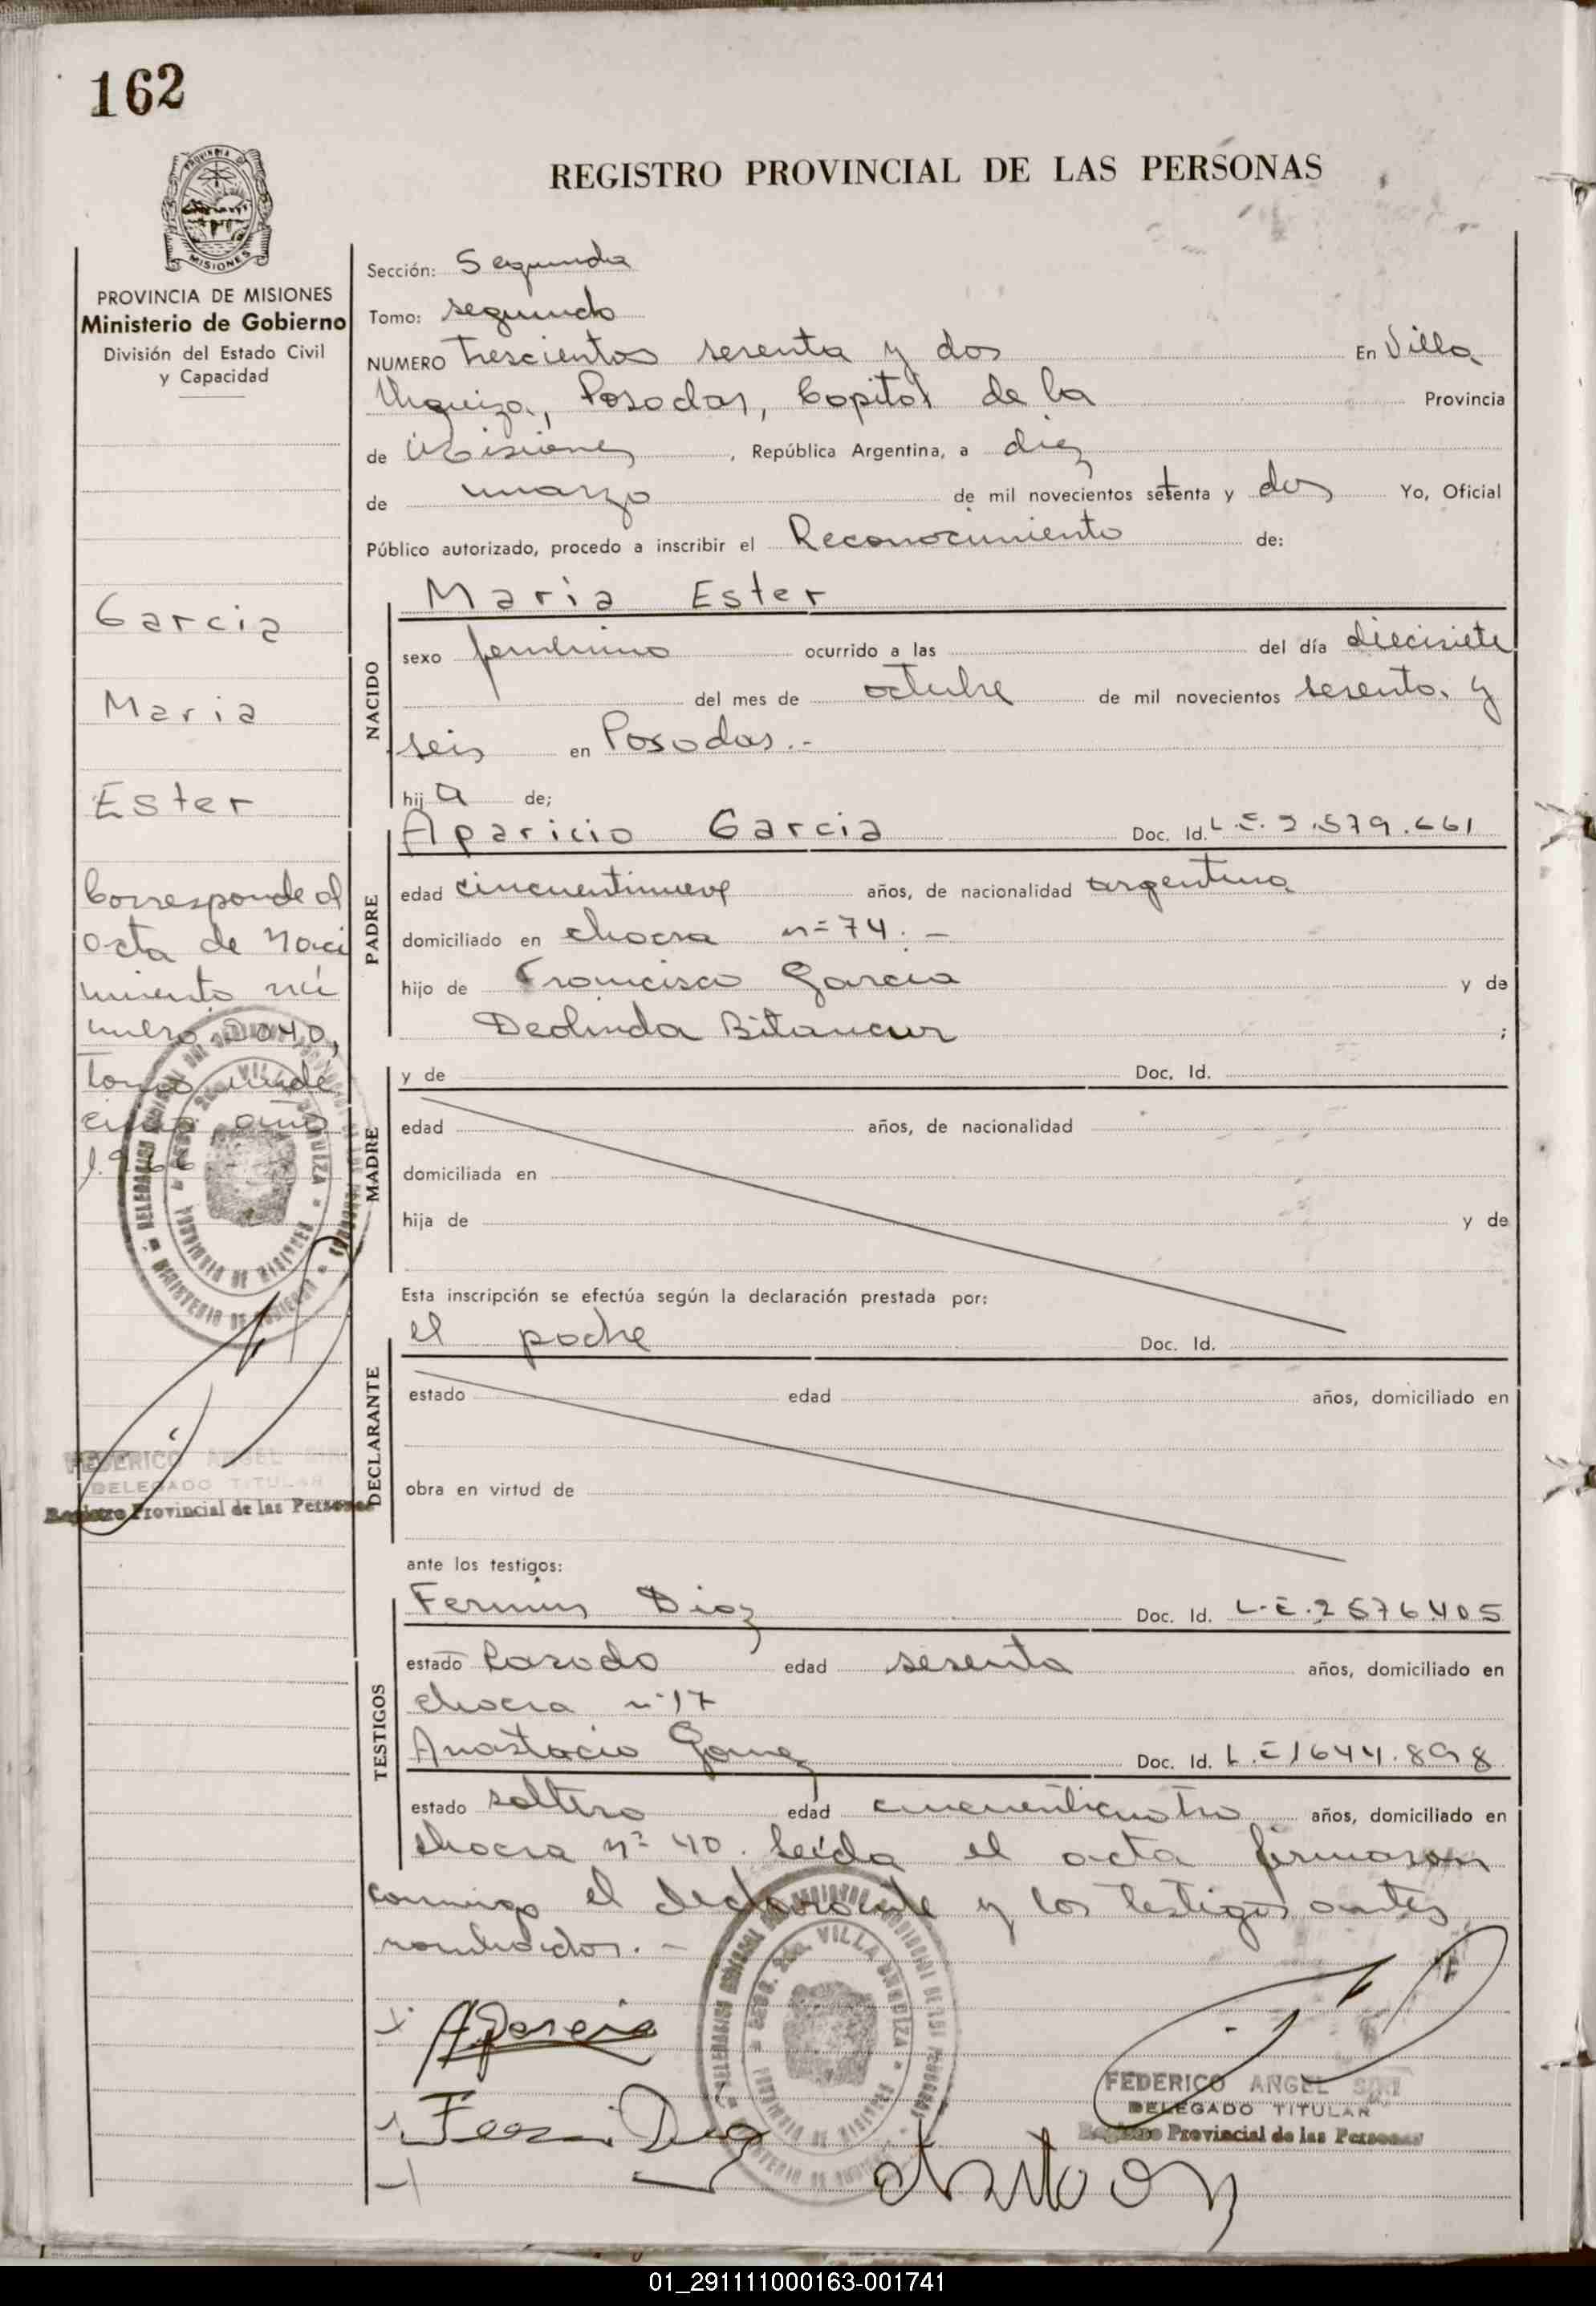 162
REGISTRO PROVINCIAL DE LAS PERSONAS
MISIONES
PROVINCIA DE MISIONES
Ministerio de Gobierno
División del Estado Civil
y Capacidad
Garcia
Maria
Ester
Corresponde al
acta de naci
miento nú
mero 2040,
Tomo undé
cimo año
1.966
FEDERICO ANGEL
DELEGADO TITULAR
Registro Provincial de las Personas
Sección: Segunda
Tomo: segundo
NUMERO Trescientos sesenta y dos En Villa
Urquiza, Posadas, Capital de la Provincia
de Misiones, República Argentina, a diez
de marzo de mil novecientos setenta y dos Yo, Oficial
Público autorizado, procedo a inscribir el Reconocimiento de:
NACIDO
Maria Ester
sexo femenino ocurrido a las del día diecisiete
del mes de octubre de mil novecientos sesenta y
seis en Posadas.-
hij a de;
PADRE
Aparicio Garcia Doc. Id. L.E. 2.579.661
edad cincuentinueve años, de nacionalidad argentina
domiciliado en chacra n=74.-
hijo de Francisco Garcia y de
Deolinda Bitancur ;
MADRE
y de Doc. Id.
edad años, de nacionalidad
domiciliada en
hija de y de
Esta inscripción se efectúa según la declaración prestada por:
DECLARANTE
el padre Doc. Id.
estado edad años, domiciliado en
obra en virtud de
ante los testigos:
TESTIGOS
Fermin Diaz Doc. Id. L.E. 2576405
estado Casado edad sesenta años, domiciliado en
chacra n·17
Anastacio Gomez Doc. Id. L.E 1644.898
estado soltero edad cincuenticuatro años, domiciliado en
chacra nº 40. Leída el acta firmaron
conmigo el declarante y los testigos antes
nombrados.-
A Garcia
FEDERICO ANGEL
DELEGADO TITULAR
Registro Provincial de las Personas
01_291111000163-001741